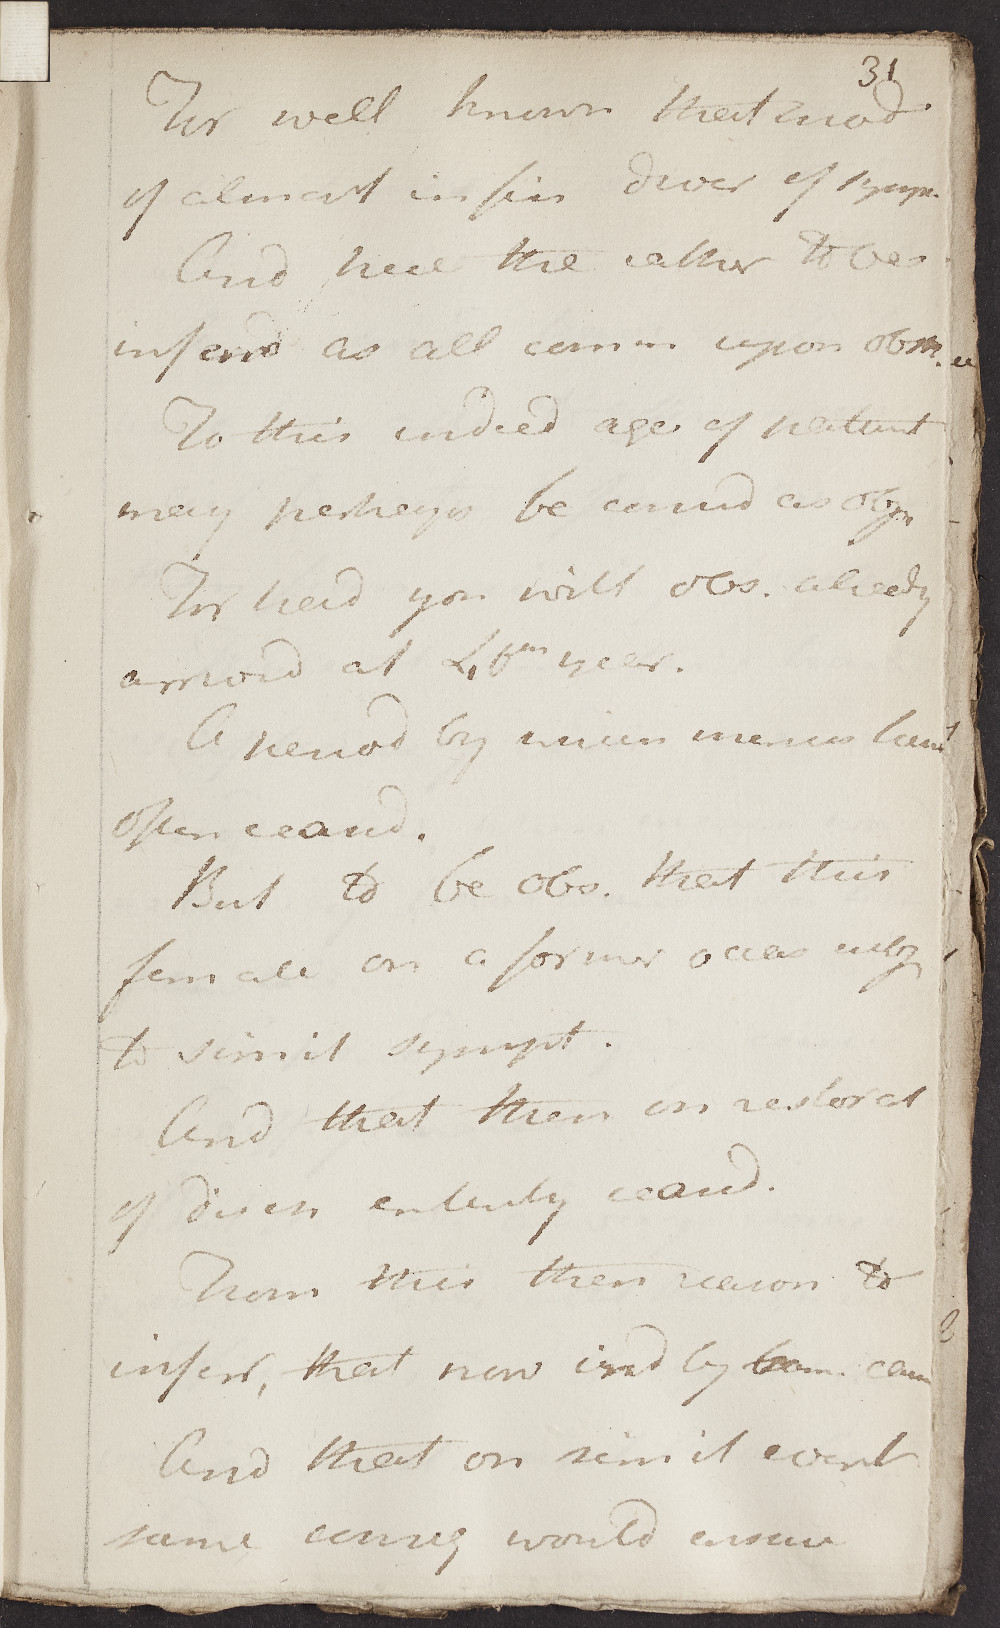 31
For well known that prod
of almost infin diver of symp.
And here the rather to be
inferrd as all comm upon obstr.
To this indeed age of patient
may perhaps be considd as obj.
For had you will obs. already
arrived at 46th year.
A period by which menses have
often ceasd.
But to be obs. that this
female on a former occas subj
to simil sympt.
And that then on restorat
of disch entirely ceasd.
From this then reason to
infer, that now ind by same caus
And that on simil event
same conseq would ensue